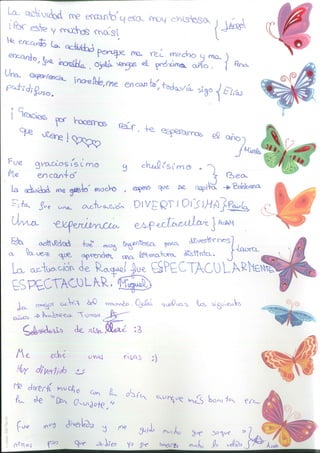 La actividad me encantó y era muy chistosa
¡Por este y muchos más!
Me encantó la actividad porque me reí mucho y me
encantó, fue increíble, Ojalá venga el próximo año. } Ana
Una experiencia increíble, me encantó, todavía sigo } Elías
patidifuso.
¡Gracias por hacernos reír, te esperamos el año
que viene!
Fue graciosísimo y chulísimo. } Bea
Me encantó
La actividad me gustó mucho, espero que se repita → Bárbara
Esta fue una actuación DIVERTIDÍSIMA } Paula
Una experiencia espectacular }
Esta actividad fue muy ingeniosa para divertirnos } Laura
a la vez que aprender una literatura distinta.
La actuación de Raquel fue ESPECTACULARMENTE
ESPECTACULAR. (Miguel)
La mejor activi del mundo Ojalá vuelvas los siguientes
años → Andreea
de risa :3
Me eché unas risas :)
Muy divertido
Me divertí mucho con la obra aunque más bonita era
la de "Don Quijote."
Fue muy divertido y me gustó mucho que saque a